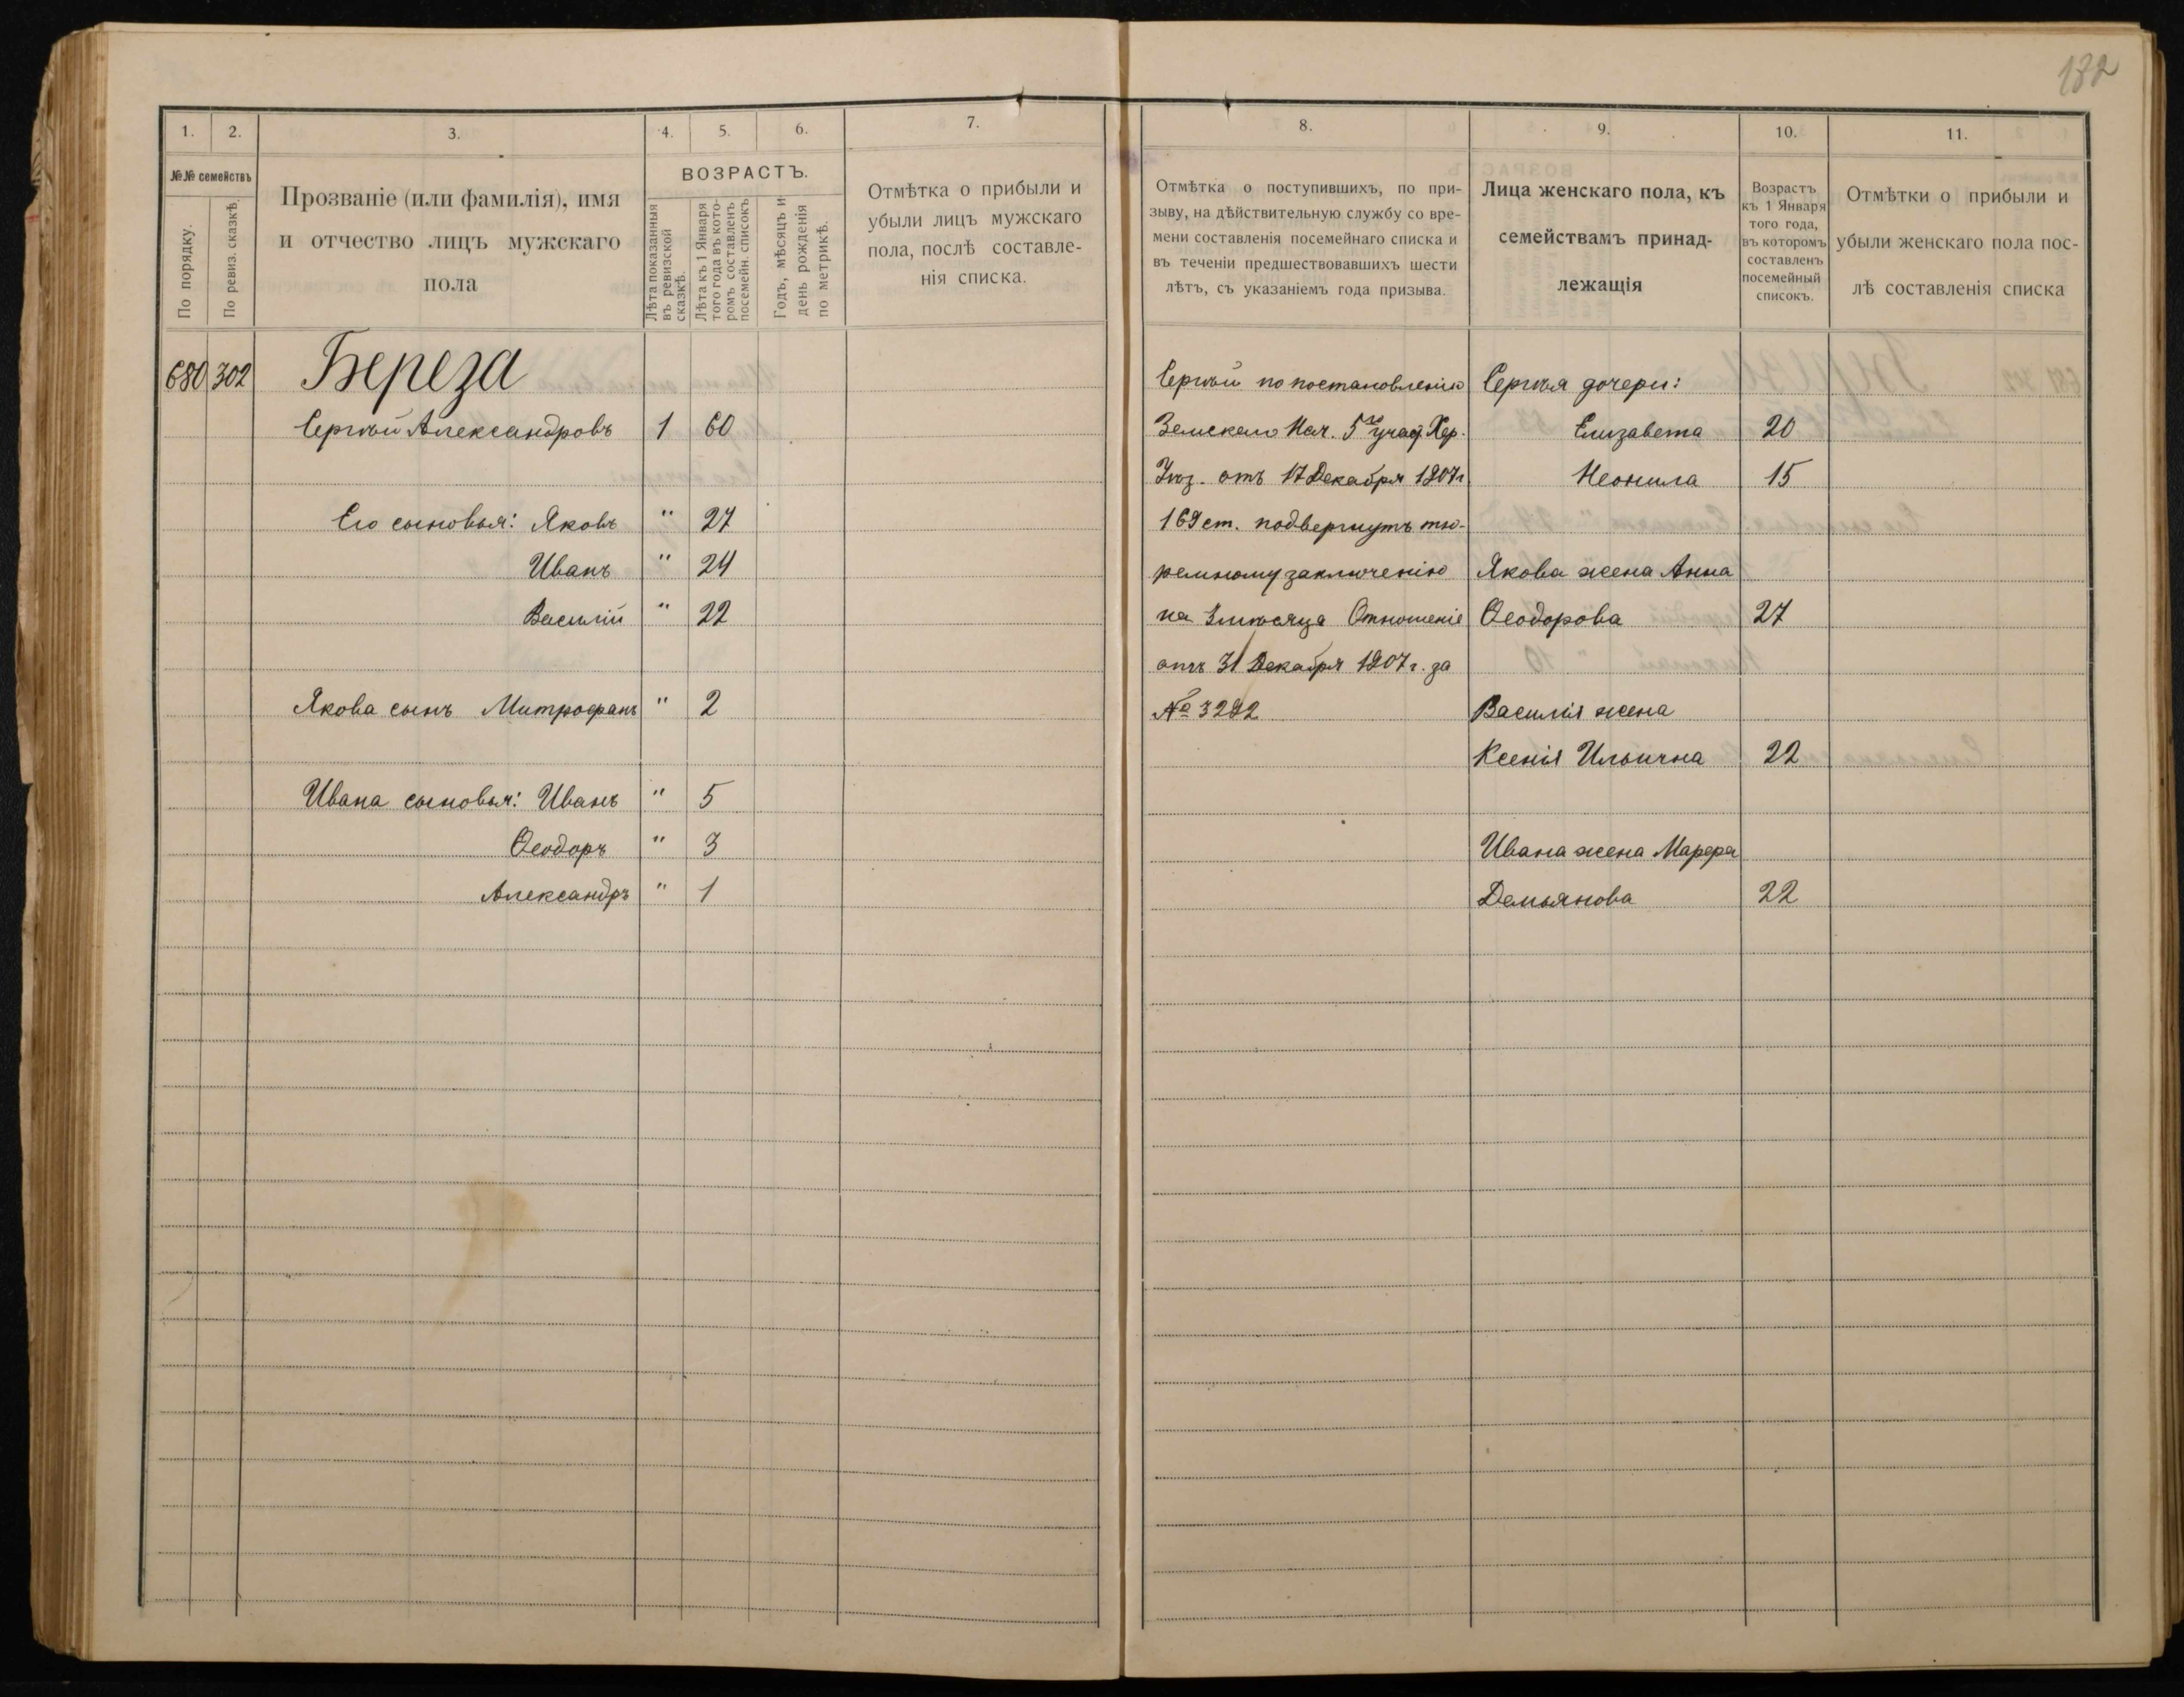 182
1. 2. 3. 4. 5. 6. 7.
№№ семействъ
По порядку.
По ревиз. сказкѣ.
Прозваніе (или фамилія), имя
и отчество лицъ мужскаго
пола
ВОЗРАСТЪ.
Лѣта показанныя
въ ревизской
сказкѣ.
Лѣта къ 1 Января
того года въ кото-
ромъ составленъ
посемейн. списокъ
Годъ, мѣсяцъ и
день рожденія
по метрикѣ.
Отмѣтка о прибыли и
убыли лицъ мужскаго
пола, послѣ составле-
нія списка.
680 302 Береза
Сергѣй Александровъ 1 60
Его сыновья: Яковъ " 27
Иванъ " 24
Василій " 22
Якова сынъ Митрофанъ " 2
Ивана сыновья: Иванъ " 5
Ѳеодоръ " 3
Александръ " 1
8. 9. 10. 11.
Отмѣтка о поступившихъ, по при-
зыву, на дѣйствительную службу со вре-
мени составленія посемейнаго списка и
въ теченіи предшествовавшихъ шести
лѣтъ, съ указаніемъ года призыва.
Лица женскаго пола, къ
семействамъ принад-
лежащія
Возрастъ
къ 1 Января
того года,
въ которомъ
составленъ
посемейный
списокъ.
Отмѣтки о прибыли и
убыли женскаго пола пос-
лѣ составленія списка
Сергѣй по постановленію Сергѣя дочери:
Земскаго Нач. 5 участ. Хер. Елизавета 20
Уѣз. отъ 17 Декабря 1907г Неонила 15
169 ст. подвергнутъ тю-
ремному заключенію Якова жена Анна
на 3 мѣсяца Отношеніе Ѳеодорова 27
отъ 31 Декабря 1907 г. за
№ 3292 Василія жена
Ксенія Ильична 22
Ивана жена Марфа
Демьянова 22